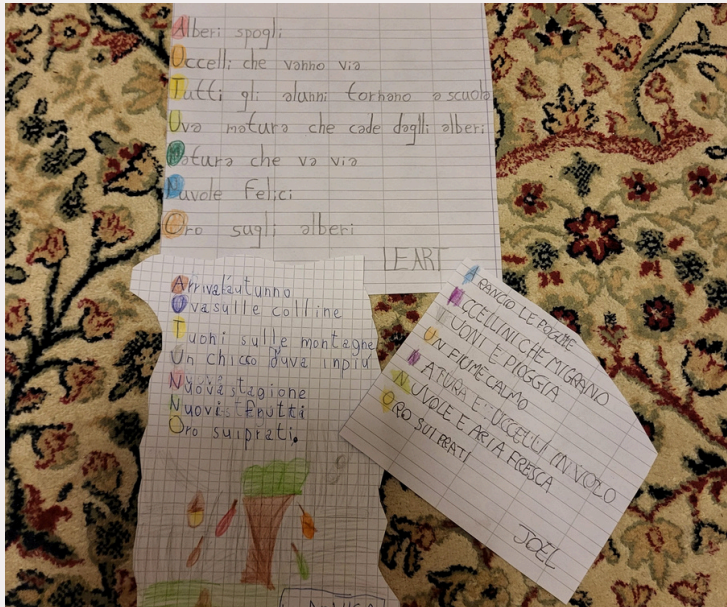 Alberi spogli
Uccelli che vanno via
Tutti gli alunni tornano a scuola
Uva matura che cade daglli alberi
Natura che va via
Nuvole Felici
Oro sugli alberi
LEART
Arriva l'autunno
Uva sulle colline
Tuoni sulle montagne
Un chicco d'uva in più
Nuova stagione
Nuovi frutti
Oro sui prati.
ARANCIO LE FOGLIE
UCCELLINI CHE MIGRANO
TUONI E PIOGGIA
UN FIUME CALMO
NATURA E UCCELLI IN VOLO
NUVOLE E ARIA FRESCA
ORO SUI PRATI
JOEL